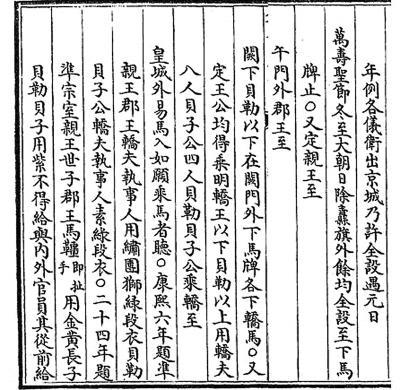 年例各儀衛出京城乃許全設遇元日
萬壽聖節冬至大朝日除纛旗外餘均全設至下馬
牌止○又定親王至
午門外郡王至
闕下貝勒以下在闕門外下馬牌各下轎馬○又
定王公均得乗明轎王以下貝勒以上用轎夫
八人貝子公四人貝勒貝子公乗轎至
皇城外易馬入如願乗馬者聽○康熙六年題準
親王郡王轎夫執事人用繡團獅綠段衣貝勒
貝子公轎夫執事人素綠段衣○二十四年題
準宗室親王世子郡王馬韁即扯手用金黄長子
貝勒貝子用紫不得給與内外官員其從前給